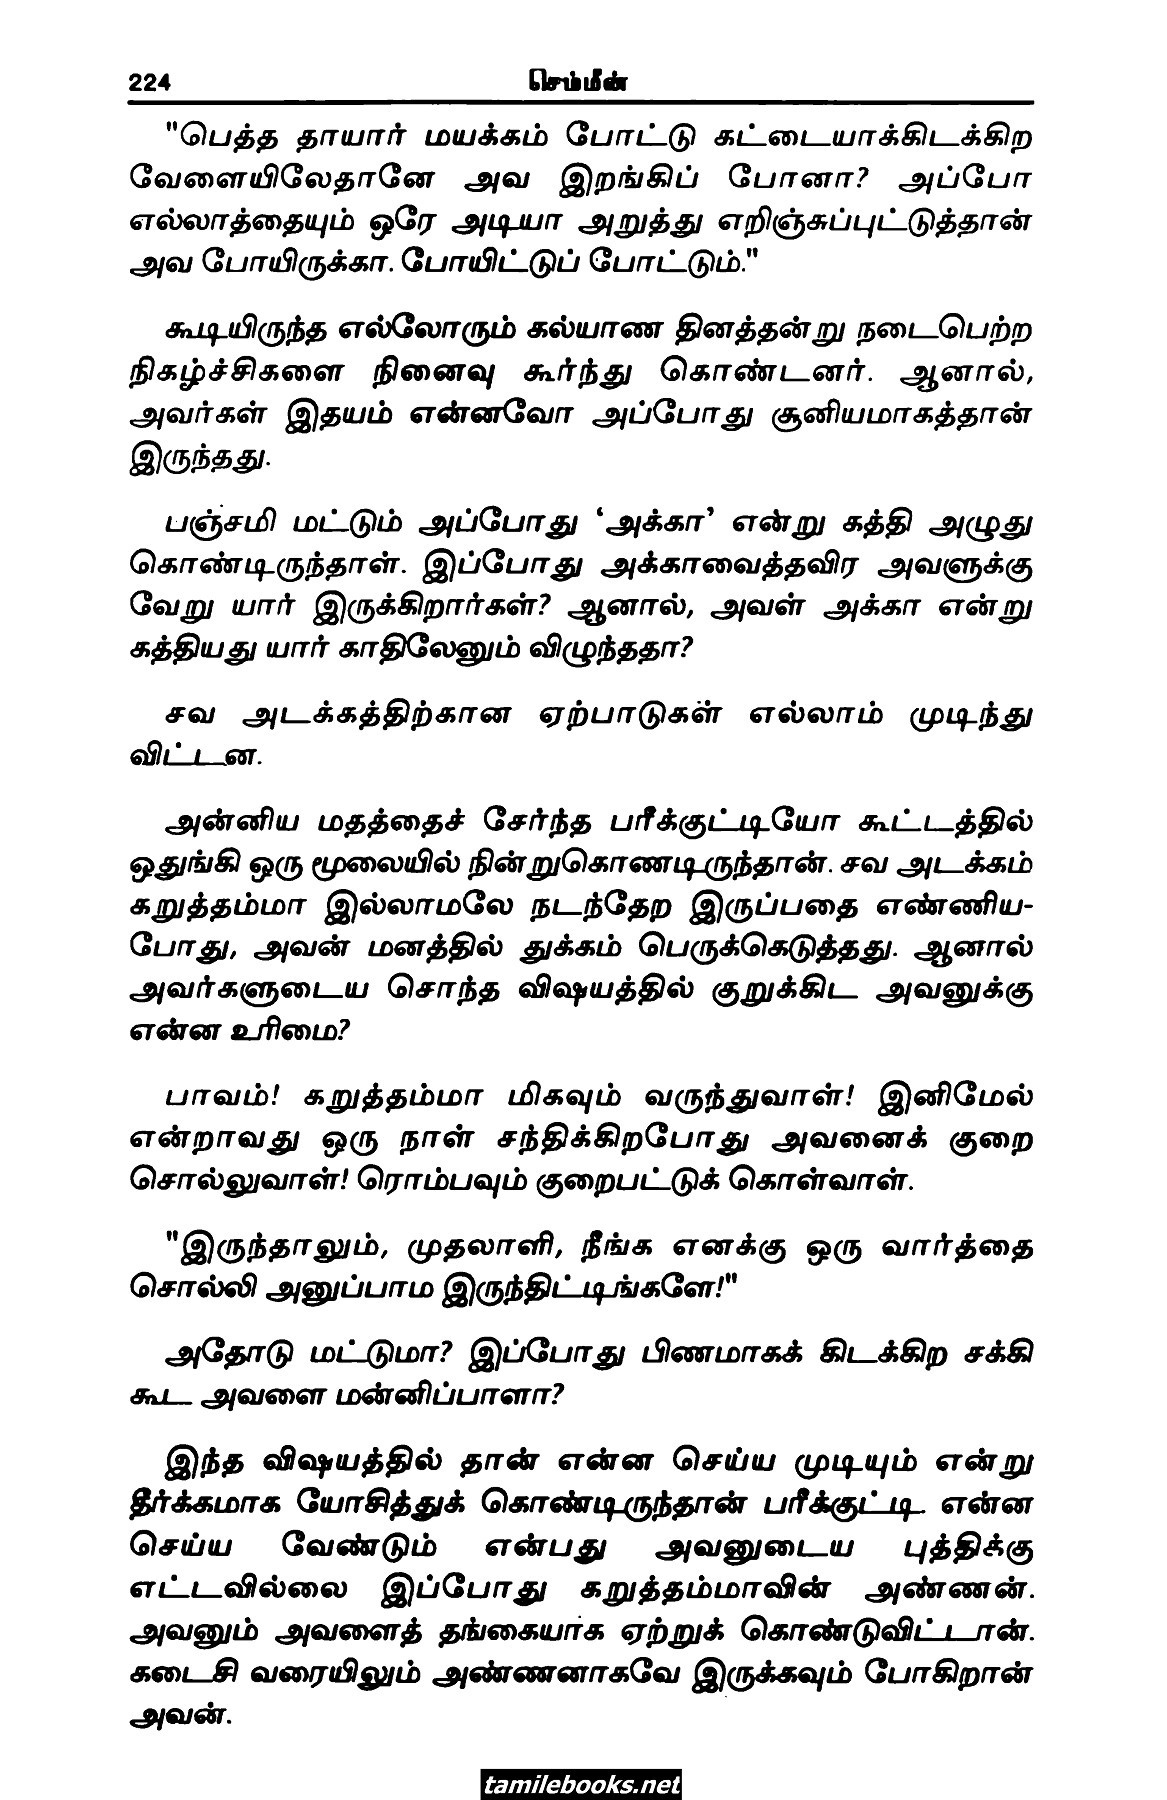 224 செம்மீன்
"பெத்த தாயார் மயக்கம் போட்டு கட்டையாக்கிடக்கிற
வேளையிலேதானே அவ இறங்கிப் போனா? அப்போ
எல்லாத்தையும் ஒரே அடியா அறுத்து எறிஞ்சுப்புட்டுத்தான்
அவ போயிருக்கா. போயிட்டுப் போட்டும்."
கூடியிருந்த எல்லோரும் கல்யாண தினத்தன்று நடைபெற்ற
நிகழ்ச்சிகளை நினைவு கூர்ந்து கொண்டனர். ஆனால்,
அவர்கள் இதயம் என்னவோ அப்போது சூனியமாகத்தான்
இருந்தது.
பஞ்சமி மட்டும் அப்போது ‘அக்கா’ என்று கத்தி அழுது
கொண்டிருந்தாள். இப்போது அக்காவைத்தவிர அவளுக்கு
வேறு யார் இருக்கிறார்கள்? ஆனால், அவள் அக்கா என்று
கத்தியது யார் காதிலேனும் விழுந்ததா?
சவ அடக்கத்திற்கான ஏற்பாடுகள் எல்லாம் முடிந்து
விட்டன.
அன்னிய மதத்தைச் சேர்ந்த பரீக்குட்டியோ கூட்டத்தில்
ஒதுங்கி ஒரு மூலையில் நின்றுகொணடிருந்தான். சவ அடக்கம்
கறுத்தம்மா இல்லாமலே நடந்தேற இருப்பதை எண்ணிய-
போது, அவன் மனத்தில் துக்கம் பெருக்கெடுத்தது. ஆனால்
அவர்களுடைய சொந்த விஷயத்தில் குறுக்கிட அவனுக்கு
என்ன உரிமை?
பாவம்! கறுத்தம்மா மிகவும் வருந்துவாள்! இனிமேல்
என்றாவது ஒரு நாள் சந்திக்கிறபோது அவனைக் குறை
சொல்லுவாள்! ரொம்பவும் குறைபட்டுக் கொள்வாள்.
"இருந்தாலும், முதலாளி, நீங்க எனக்கு ஒரு வார்த்தை
சொல்லி அனுப்பாம இருந்திட்டிங்களே!"
அதோடு மட்டுமா? இப்போது பிணமாகக் கிடக்கிற சக்கி
கூட அவளை மன்னிப்பாளா?
இந்த விஷயத்தில் தான் என்ன செய்ய முடியும் என்று
தீர்க்கமாக யோசித்துக் கொண்டிருந்தான் பரீக்குட்டி. என்ன
செய்ய வேண்டும் என்பது அவனுடைய புத்திக்கு
எட்டவில்லை இப்போது கறுத்தம்மாவின் அண்ணன்.
அவனும் அவளைத் தங்கையாக ஏற்றுக் கொண்டுவிட்டான்.
கடைசி வரையிலும் அண்ணனாகவே இருக்கவும் போகிறான்
அவன்.
tamilebooks.net